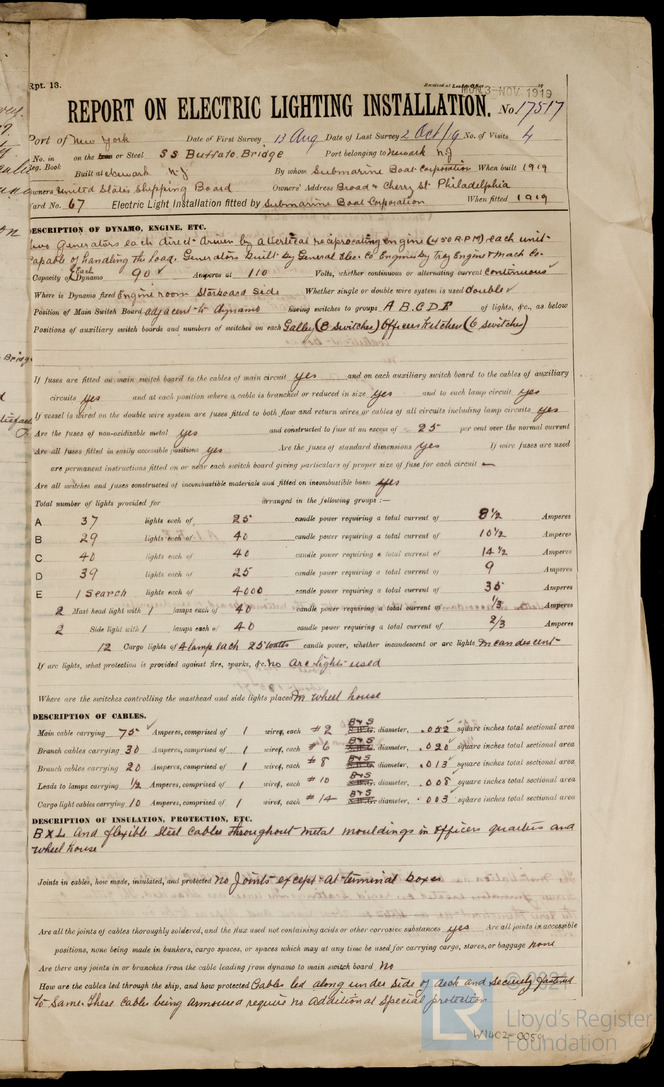 Rpt. 13.
MON. 3 - NOV 1919
REPORT ON ELECTRIC LIGHTING INSTALLATION. No. 17517
Port of New York Date of First Survey 13 Aug Date of Last Survey 2 Oct/19 No. of Visits 4
No. in Reg. Book on the Iron or Steel SS Buffalo Bridge Port belonging to Newark N.J.
Built at Newark N.J By whom Submarine Boat Corporation When built 1919
Owners United States Shipping Board Owners' Address Broad & Cherry St. Philadelphia
Yard No. 67 Electric Light Installation fitted by Submarine Boat Corporation When fitted 1919
DESCRIPTION OF DYNAMO, ENGINE, ETC.
Two Generators each direct driven by a Vertical reciprocating engine (450 R.P.M) each unit
capable of handling the load. Generators Built by General Elec. Co Engines by Troy Engine & Mach Co.
Capacity of Each Dynamo 90 Amperes at 110 Volts, whether continuous or alternating current continuous
Where is Dynamo fixed Engine room Starboard Side Whether single or double wire system is used double
Position of Main Switch Board adjacent to dynamo having switches to groups A B C D E of lights, &c., as below
Positions of auxiliary switch boards and numbers of switches on each Galley (8 switches) Officers Kitchen (6 switches)
If fuses are fitted on main switch board to the cables of main circuit yes and on each auxiliary switch board to the cables of auxiliary
circuits yes and at each position where a cable is branched or reduced in size yes and to each lamp circuit yes
If vessel is wired on the double wire system are fuses fitted to both flow and return wires or cables of all circuits including lamp circuits yes
Are the fuses of non-oxidizable metal yes and constructed to fuse at an excess of 25 per cent over the normal current
Are all fuses fitted in easily accessible positions yes Are the fuses of standard dimensions yes If wire fuses are used
are permanent instructions fitted on or near each switch board giving particulars of proper size of fuse for each circuit —
Are all switches and fuses constructed of incombustible materials and fitted on incombustible bases yes
Total number of lights provided for arranged in the following groups :—
A 37 lights each of 25 candle power requiring a total current of 8 1/2 Amperes
B 29 lights each of 40 candle power requiring a total current of 10 1/2 Amperes
C 40 lights each of 40 candle power requiring a total current of 14 1/2 Amperes
D 39 lights each of 25 candle power requiring a total current of 9 Amperes
E 1 Search lights each of 4000 candle power requiring a total current of 35 Amperes
2 Mast head light with 1 lamps each of 40 candle power requiring a total current of 1/3 Amperes
2 Side light with 1 lamps each of 40 candle power requiring a total current of 2/3 Amperes
12 Cargo lights of 4 lamp each 25 watts candle power, whether incandescent or arc lights Incandescent
If arc lights, what protection is provided against fire, sparks, &c. No arc lights used
Where are the switches controlling the masthead and side lights placed In wheel house
DESCRIPTION OF CABLES.
Main cable carrying 75 Amperes, comprised of 1 wires, each #2 B & S S.W.G. diameter, .052 square inches total sectional area
Branch cables carrying 30 Amperes, comprised of 1 wires, each #6 B & S S.W.G. diameter, .020 square inches total sectional area
Branch cables carrying 20 Amperes, comprised of 1 wires, each #8 B & S S.W.G. diameter, .013 square inches total sectional area
Leads to lamps carrying 1/2 Amperes, comprised of 1 wires, each #10 B & S S.W.G. diameter, .008 square inches total sectional area
Cargo light cables carrying 10 Amperes, comprised of 1 wires, each #14 B & S S.W.G. diameter, .003 square inches total sectional area
DESCRIPTION OF INSULATION, PROTECTION, ETC.
B X L and flexible Steel Cables throughout metal mouldings in officers quarters and
wheel house
Joints in cables, how made, insulated, and protected No Joints except at terminal boxes
Are all the joints of cables thoroughly soldered, and the flux used not containing acids or other corrosive substances yes Are all joints in accessible
positions, none being made in bunkers, cargo spaces, or spaces which may at any time be used for carrying cargo, stores, or baggage none
Are there any joints in or branches from the cable leading from dynamo to main switch board No
How are the cables led through the ship, and how protected Cables led along under side of deck and securely fastened
to same. These cables being armoured require no additional special protection
© 2021
LR Lloyd's Register
Foundation
W1402-0059